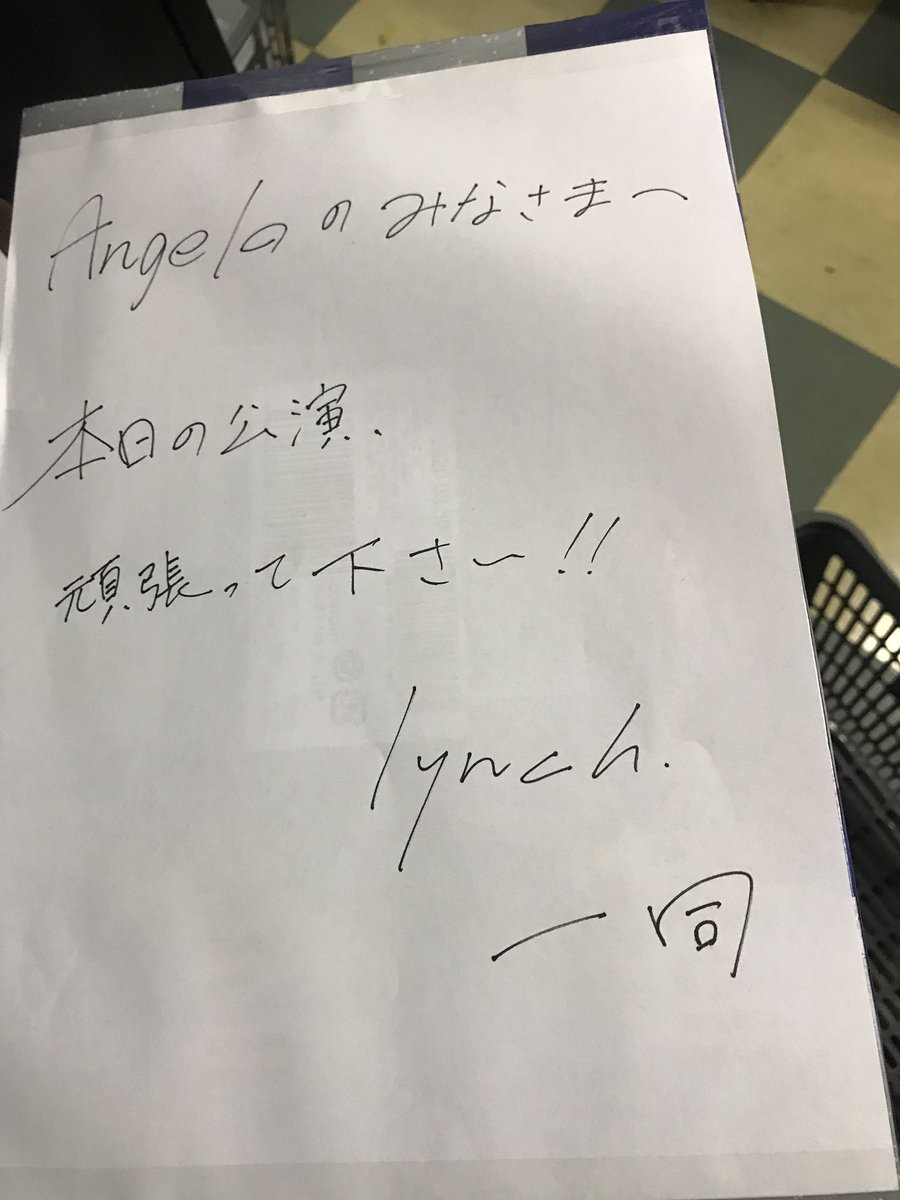 Angelaのみなさまへ
本日の公演、
頑張って下さい!!
lynch.
一同